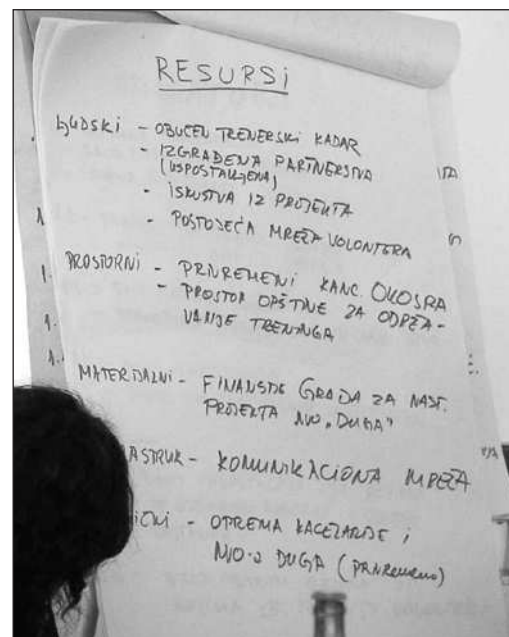 RESURSI
LJUDSKI - OBUČEN TRENERSKI KADAR
- IZGRAĐENA PARTNERSTVA
(USPOSTAVLJENA)
- ISKUSTVA IZ PROJEKTA
- POSTOJEĆA MREŽA VOLONTERA
PROSTORNI - PRIVREMENI KANC.
- PROSTOR OPŠTINE ZA ODRŽA-
VANJE TRENINGA
MATERIJALNI - FINANSIJE GRADA ZA
PROJEKTA NVO „DUGA"
ASTRUK - KOMUNIKACIONA MREŽA
IČKI - OPREMA KANCELARIJE I
NVO-a DUGA (PRIVREMENO)